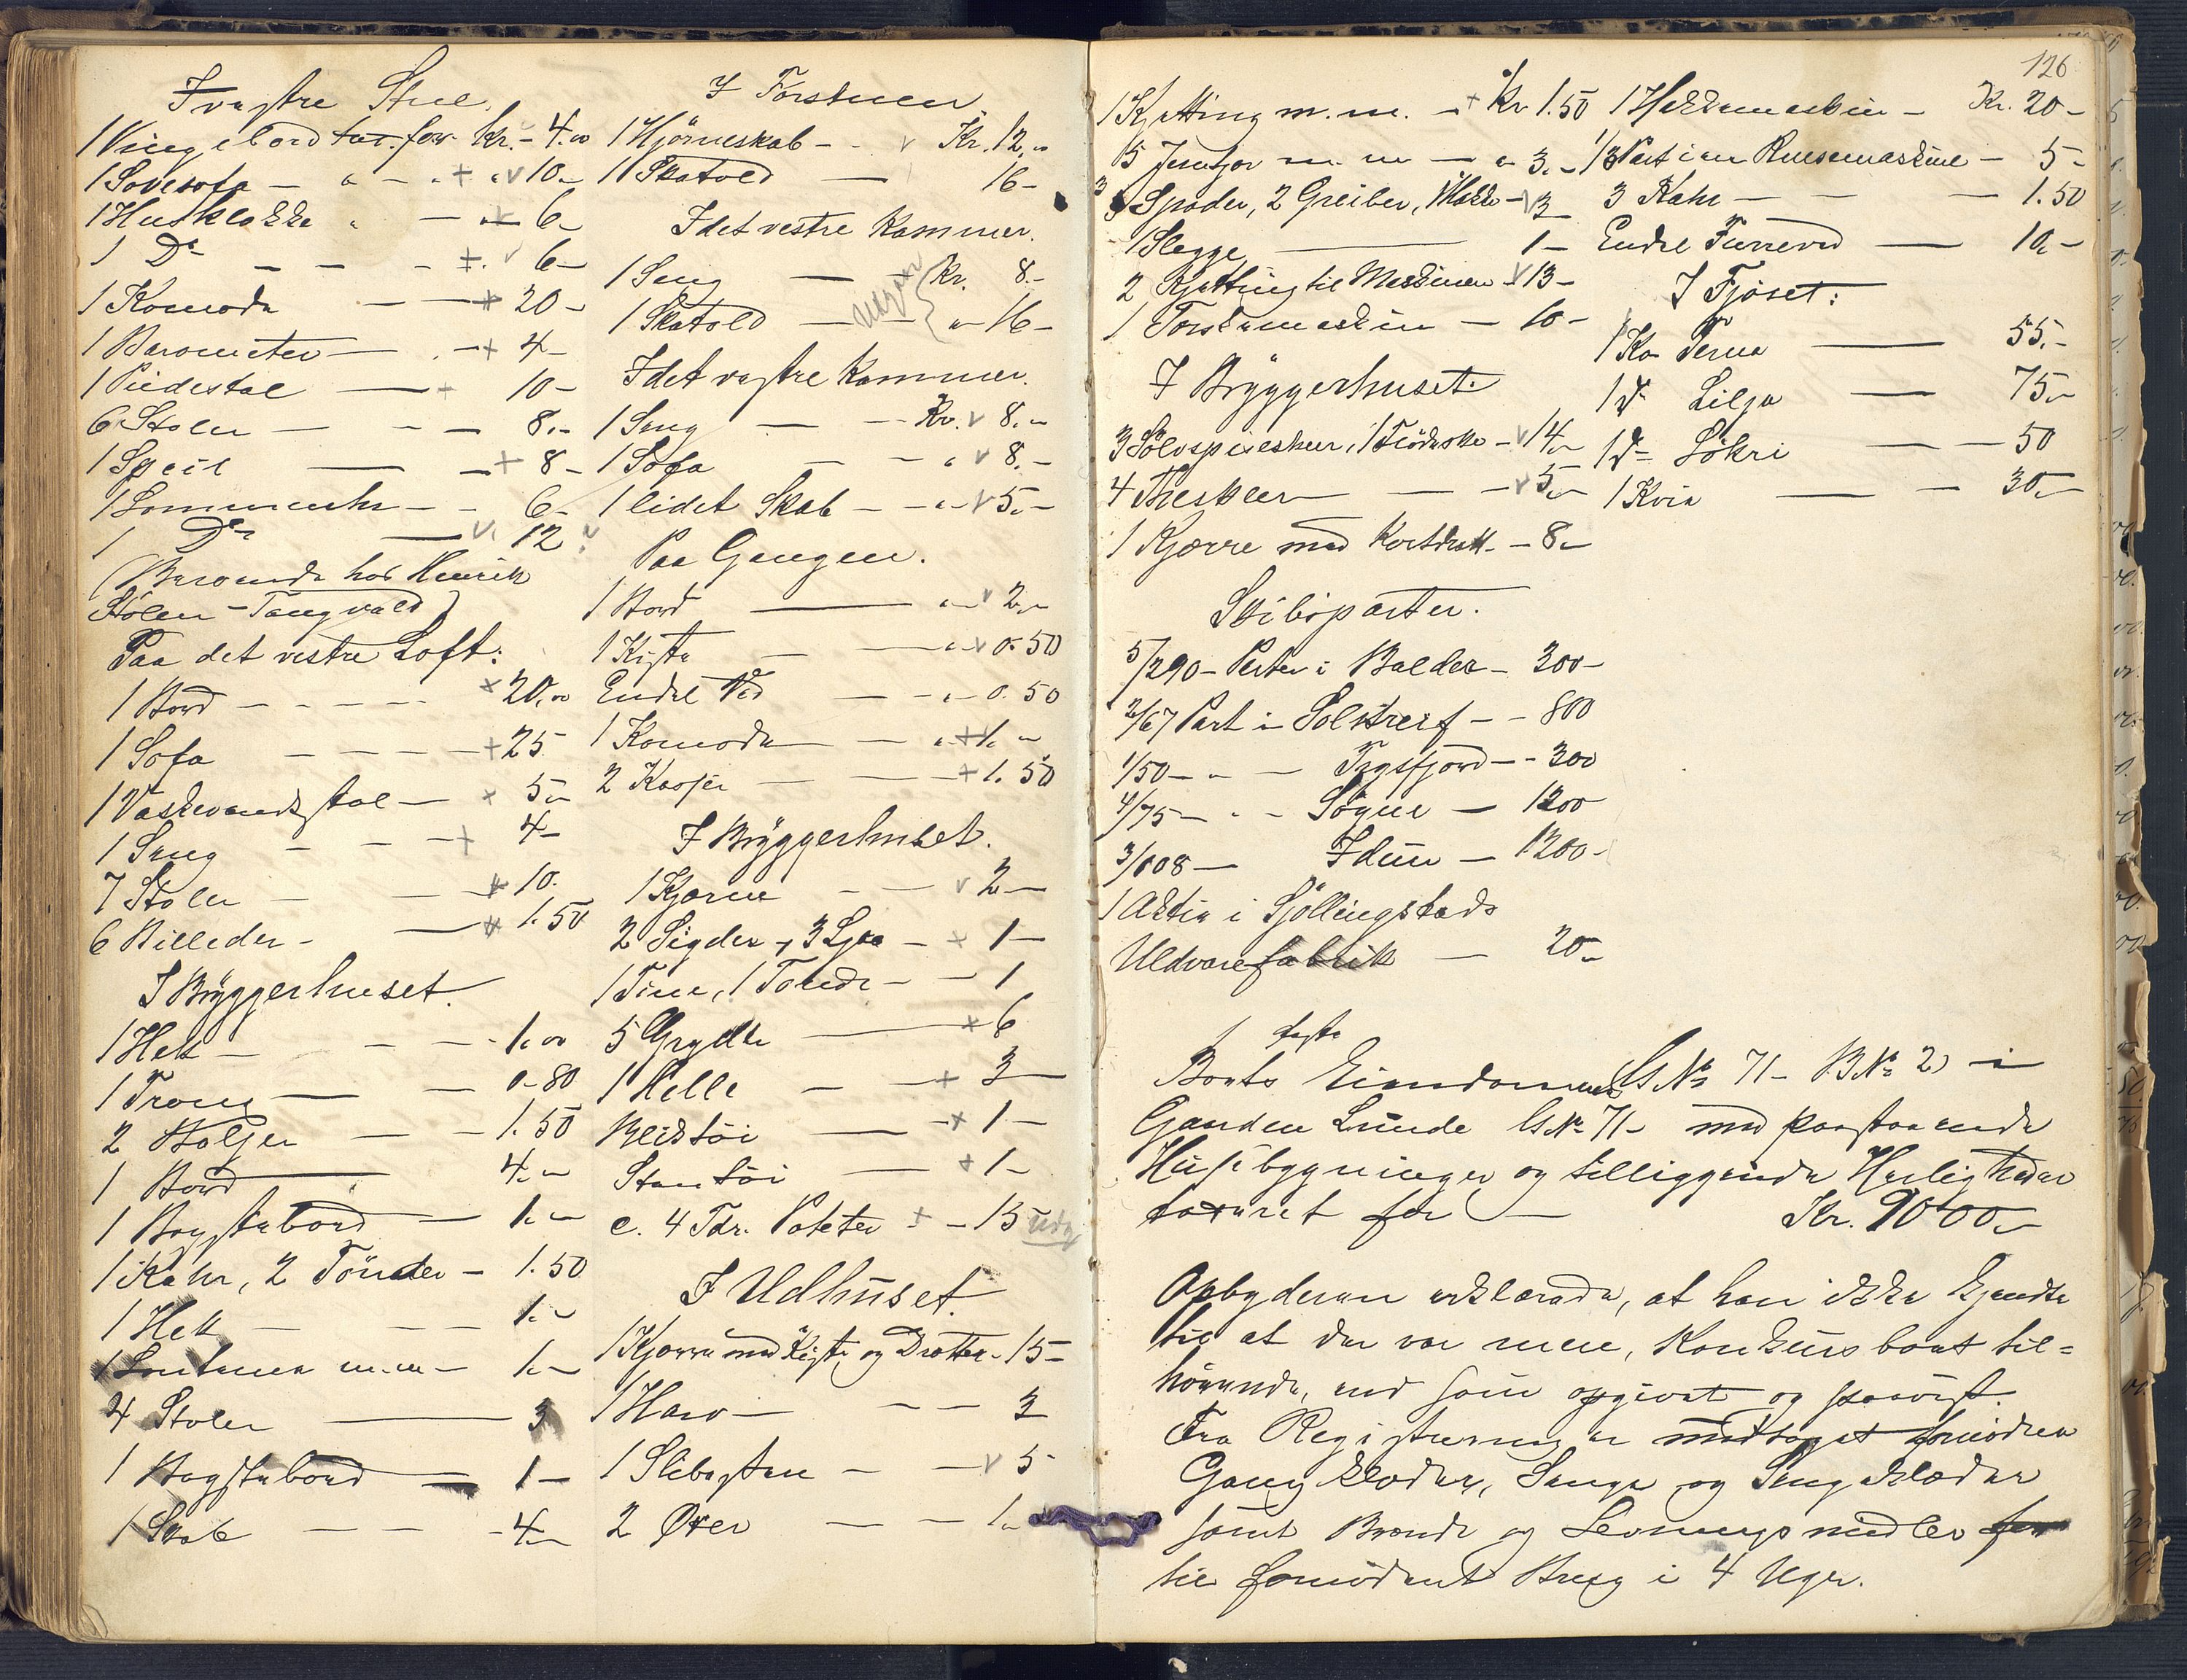 I vestre Stue.
1 Vingebord tax. for Kr. - 4.00
1 Sovesofa - " - + " v 10.-
1 Husklokke " - v 6-
1 Do - - - +. v 6-
1 Komode - - + 20-
1 Barometer - - + 4-
1 Piedestal - + 10-
6 Stoler - - - 8.-
1 Speil - - + 8-
1 Lommeuhr - - 6-
1 Do - v. 12 ?
(Beroende hos Henrik
Stølen - Tangvald)
Paa det vestre Loft:
1 Bord - - - - + 20.00
1 Sofa - - - - + 25
1 Vaskevandsstol - + 5.-
1 Seng - - - + 4-
7 Stoler - - + 10.
6 Billeder - - + 1.50
I Bryggerhuset.
1 Hek - - - - 1.00
1 Troug - - 0-80
2 Boljer - - 1.50
1 Bord - 4.-
1 Bagstebord - 1.-
1 Kahr, 2 Tönder - 1.50
1 Hek - - - 1.-
1 Lanterne m.m - 1.-
4 Stoler - 3
1 Bagstebord - 1-
1 Skab - - - - 4.-
I Forstuen
1 Hjörneskab - - v Kr. 12.-
1 Skatold - 16-
I det vestre Kammer.
1 Seng - - Kr. 8.-
1 Skatold - - " - 16-
I det østre Kammer.
1 Seng - - Kr. v 8.-
1 Sofa - - " v 8.-
1 lidet Skab - - " - v 5.-
Paa Gangen.
1 Bord - " - v 2.-
1 Kiste - - " - v 0.50
Endel Ved - - " - 0.50
1 Komode - - " + 1.-
2 Kasser - - + 1.50
I Bryggerhuset.
1 Kjerne - - v 2-
2 Sigder, 3 Ljaa - + 1-
1 Tine, 1 Tønde - - 1
5 Grydte - + 6
1 Helle - - + 3-
Bliktöi - + 1-
Stentöi - + 1-
c. 4 Tdr. Poteter - + - 15
I Udhuset.
1 Kjærre med Kiste og Drætter - 15-
1 Harv - - - 3
1 Slibesten - - v 5-
2 Øxer - - 1.-
126
1 Kjetting m.m. - + Kr 1.50
5 m. m - " 3.-
3 Spader, 2 Greiber, 1 Hakke - v 3
1 Slegge - 1-
2 Kjetting til Maskinen - v 13-
1 Torskemaskin - 10-
I Bryggerhuset:
3 Sölvspiseskeer, 1 Flödeske - v 14.-
4 Theskeer - - v 5.-
1 Kjærre med - 8.-
Skibsparter.
5/290 - Parter i Balder - 300-
2/67 Part i Solstreif - - 800
1/50 - " - Tzysfjord - - 300
4/75 - " - Søgne - 1200
3/108 - Idun - 1200-
1 Aktie i Sjöllingstads
Uldvarefabrik - 20.-
1 Hakkemaskin - Kr. 20-
1/3 Part i en Rensemaskine - 5-
3 Kahr - - - 1.50
Endel Furreved - 10.-
I Fjöset:
1 Ko Perna - 55.-
1 do Lilja - 75.-
1 do Lökri - - 50
1 Kvie - - 30.-
1 faste
Boets Eiendommen GNo 71- BNo 2) i
Ganden Lunde GNo 71- med paastaaende
Husebygninger og tilliggende Herligheder
taxeret for - Kr. 9000.-
Opbyderen erklærede, at han ikke kjendte
til at der var mere, Konkursboet til=
hörende, end som opgivet og paavist.
Fra Registrering er undtaget fornödne
Gangklæder, Senge og Sengeklæder
samt Brænde og Levningsmidler for
til fornödent Brug i 4 Uger.